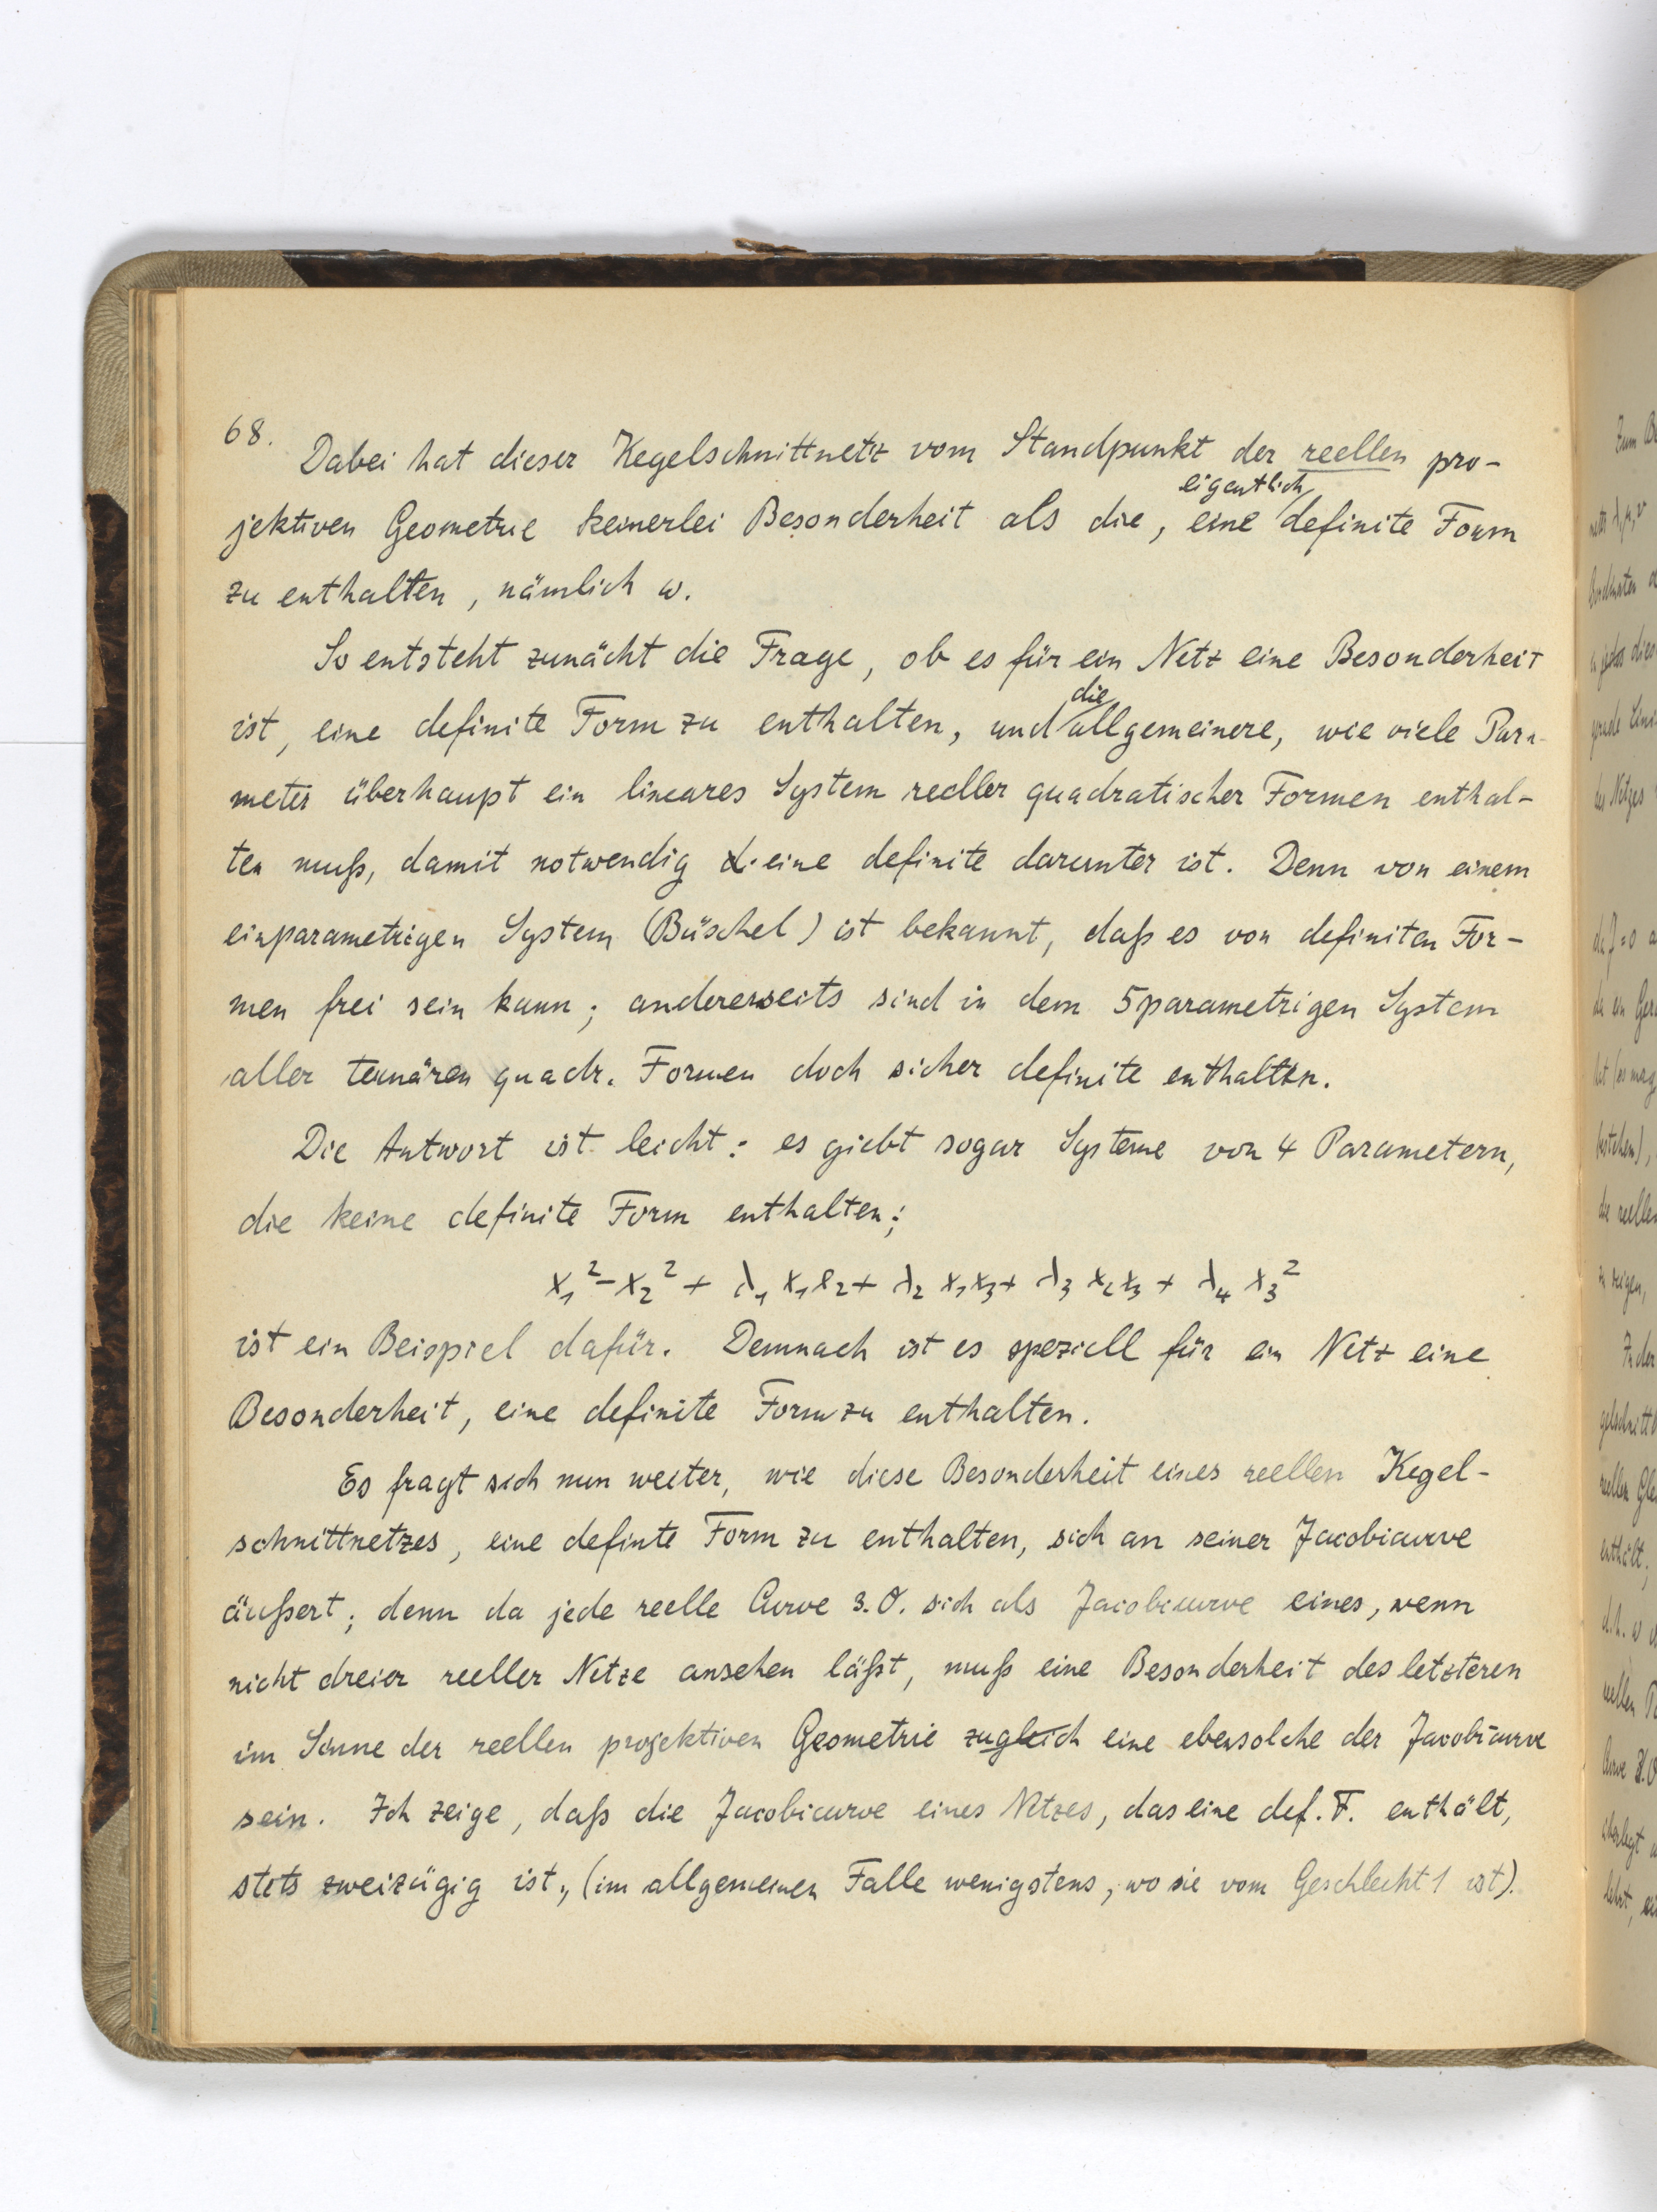 68.
Dabei hat dieser Kegelschnittnetz vom Standpunkt der reellen pro-
eigentlich
jektiven Geometrie keinerlei Besonderheit als die, eine definite Form
zu enthalten, nämlich ω.
So entsteht zunächt die Frage, ob es für ein Netz eine Besonderheit
die
ist, eine definite Form zu enthalten, und allgemeinere, wie viele Para-
meter überhaupt ein lineares System reeller quadratischer Formen enthal-
ten muß, damit notwendig eine definite darunter ist. Denn von einem
einparametrigen System (Büschel) ist bekannt, daß es von definiten For-
men frei sein kann; andererseits sind in dem 5parametrigen System
aller ternären quadr. Formen doch sicher definite enthalten.
Die Antwort ist leicht: es giebt sogar Systeme von 4 Parametern,
die keine definite Form enthalten;
x₁² - x₂² + λ₁ x₁x₂ + λ₂ x₁x₃ + λ₃ x₂x₃ + λ₄ x₃²
ist ein Beispiel dafür. Demnach ist es speziell für ein Netz eine
Besonderheit, eine definite Form zu enthalten.
Es fragt sich nun weiter, wie diese Besonderheit eines reellen Kegel-
schnittnetzes, eine definte Form zu enthalten, sich an seiner Jacobicurve
äußert; denn da jede reelle Curve 3. O. sich als Jacobicurve eines, wenn
nicht dreier reeller Netze ansehen läßt, muß eine Besonderheit des letzteren
im Sinne der reellen projektiven Geometrie zugleich eine ebensolche der Jacobicurve
sein. Ich zeige, daß die Jacobicurve eines Netzes, das eine def. F. enthält,
stets zweizügig ist, (im allgemeinen Falle wenigstens, wo sie vom Geschlecht 1 ist).